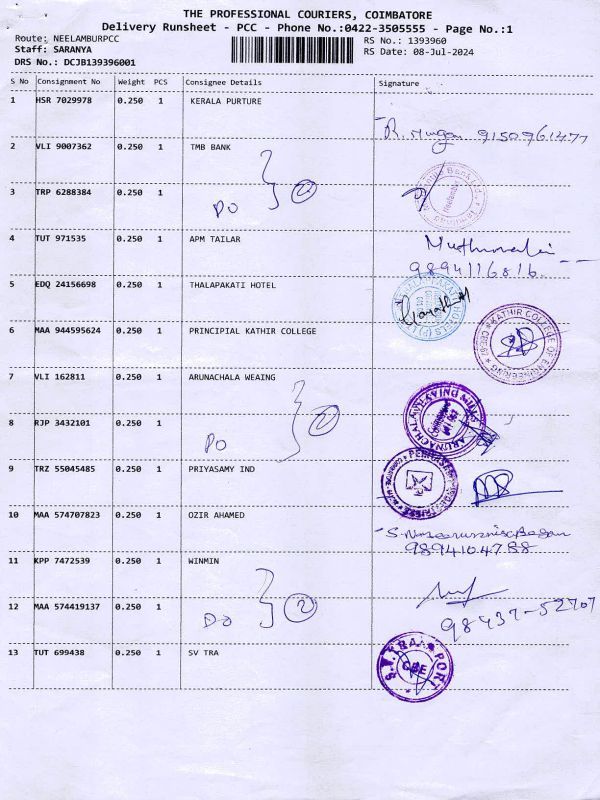 THE PROFESSIONAL COURIERS, COIMBATORE
Delivery Runsheet - PCC - Phone No.:0422-3505555 - Page No.:1
Route: NEELAMBURPCC
RS No.: 1393960
Staff: SARANYA
RS Date: 08-Jul-2024
DRS No.: DCJB139396001
S No Consignment No Weight PCS Consignee Details Signature
1 HSR 7029978 0.250 1 KERALA PURTURE
R. Murugan 9150961477
2 VLI 9007362 0.250 1 TMB BANK
3 TRP 6288384 0.250 1
DO 2
4 TUT 971535 0.250 1 APM TAILAR
Muthumalai
9894116816
5 EDQ 24156698 0.250 1 THALAPAKATI HOTEL
6 MAA 944595624 0.250 1 PRINCIPIAL KATHIR COLLEGE
KATHIR COLLEGE OF ENGINEERING
7 VLI 162811 0.250 1 ARUNACHALA WEAING
8 RJP 3432101 0.250 1
DO 2
9 TRZ 55045485 0.250 1 PRIYASAMY IND
10 MAA 574707823 0.250 1 OZIR AHAMED
9894104788
11 KPP 7472539 0.250 1 WINMIN
12 MAA 574419137 0.250 1
DO 2
98437-52707
13 TUT 699438 0.250 1 SV TRA
CBE